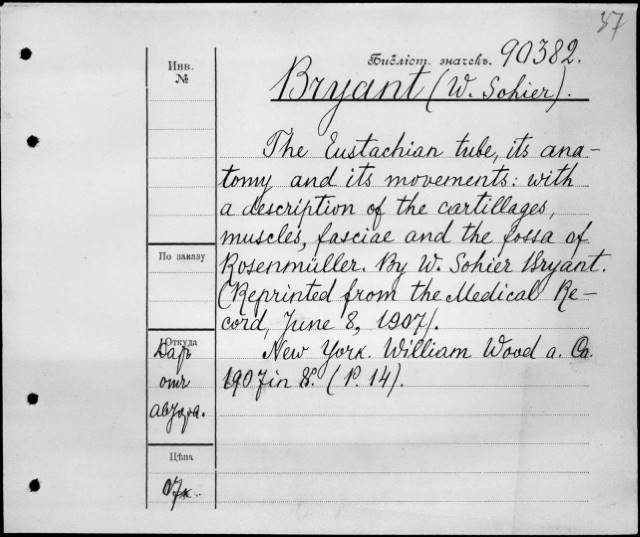 37
Библіот. значекъ. 90382.
Bryant (W. Sohier).
Инв.
№
The Eustachian tube, its ana-
tomy and its movements: with
a description of the cartillages,
muscles, fasciae and the fossa of
Rosenmüller. By W. Sohier Bryant.
(Reprinted from the Medical Re-
cord, June 8, 1907).
New York. William Wood a. Co.
1907 in 8º. (P. 14).
По заказу
Откуда
Даръ
отъ
автора.
Цѣна